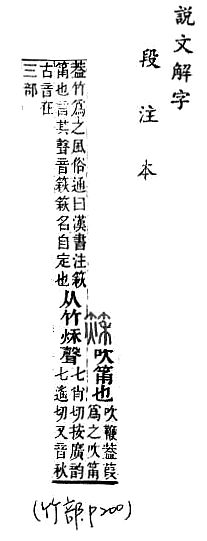 說文解字
段注本
篍
吹筩也
吹鞭葢葭
爲之吹筩
葢竹爲之風俗通曰漢書注篍
筩也言其聲音篍篍名自定也
从竹秌聲
七肖切按廣韵
七遙切又音秋
古音在
三部
(竹部.P200)